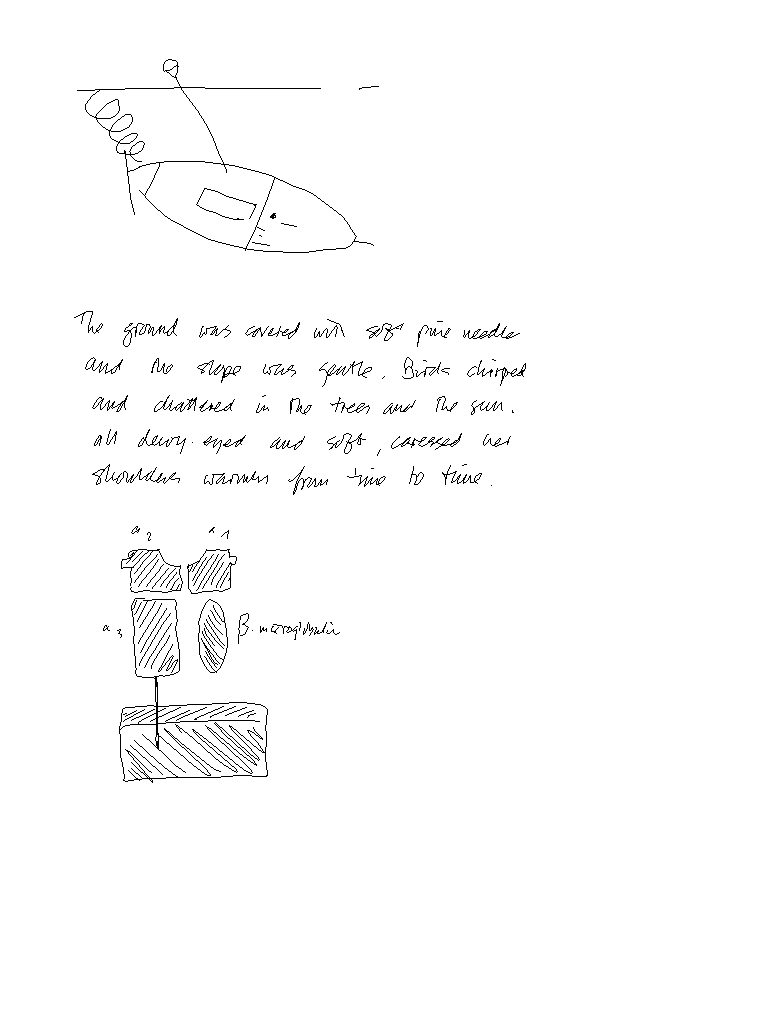 The ground was covered with soft pine needle
and the slope was gentle. Birds chirped
and chattered in the trees and the sun.
all dewy-eyed and soft, caressed her
shoulders warmer from time to time.
α2 α1
α3 β-microglobulin